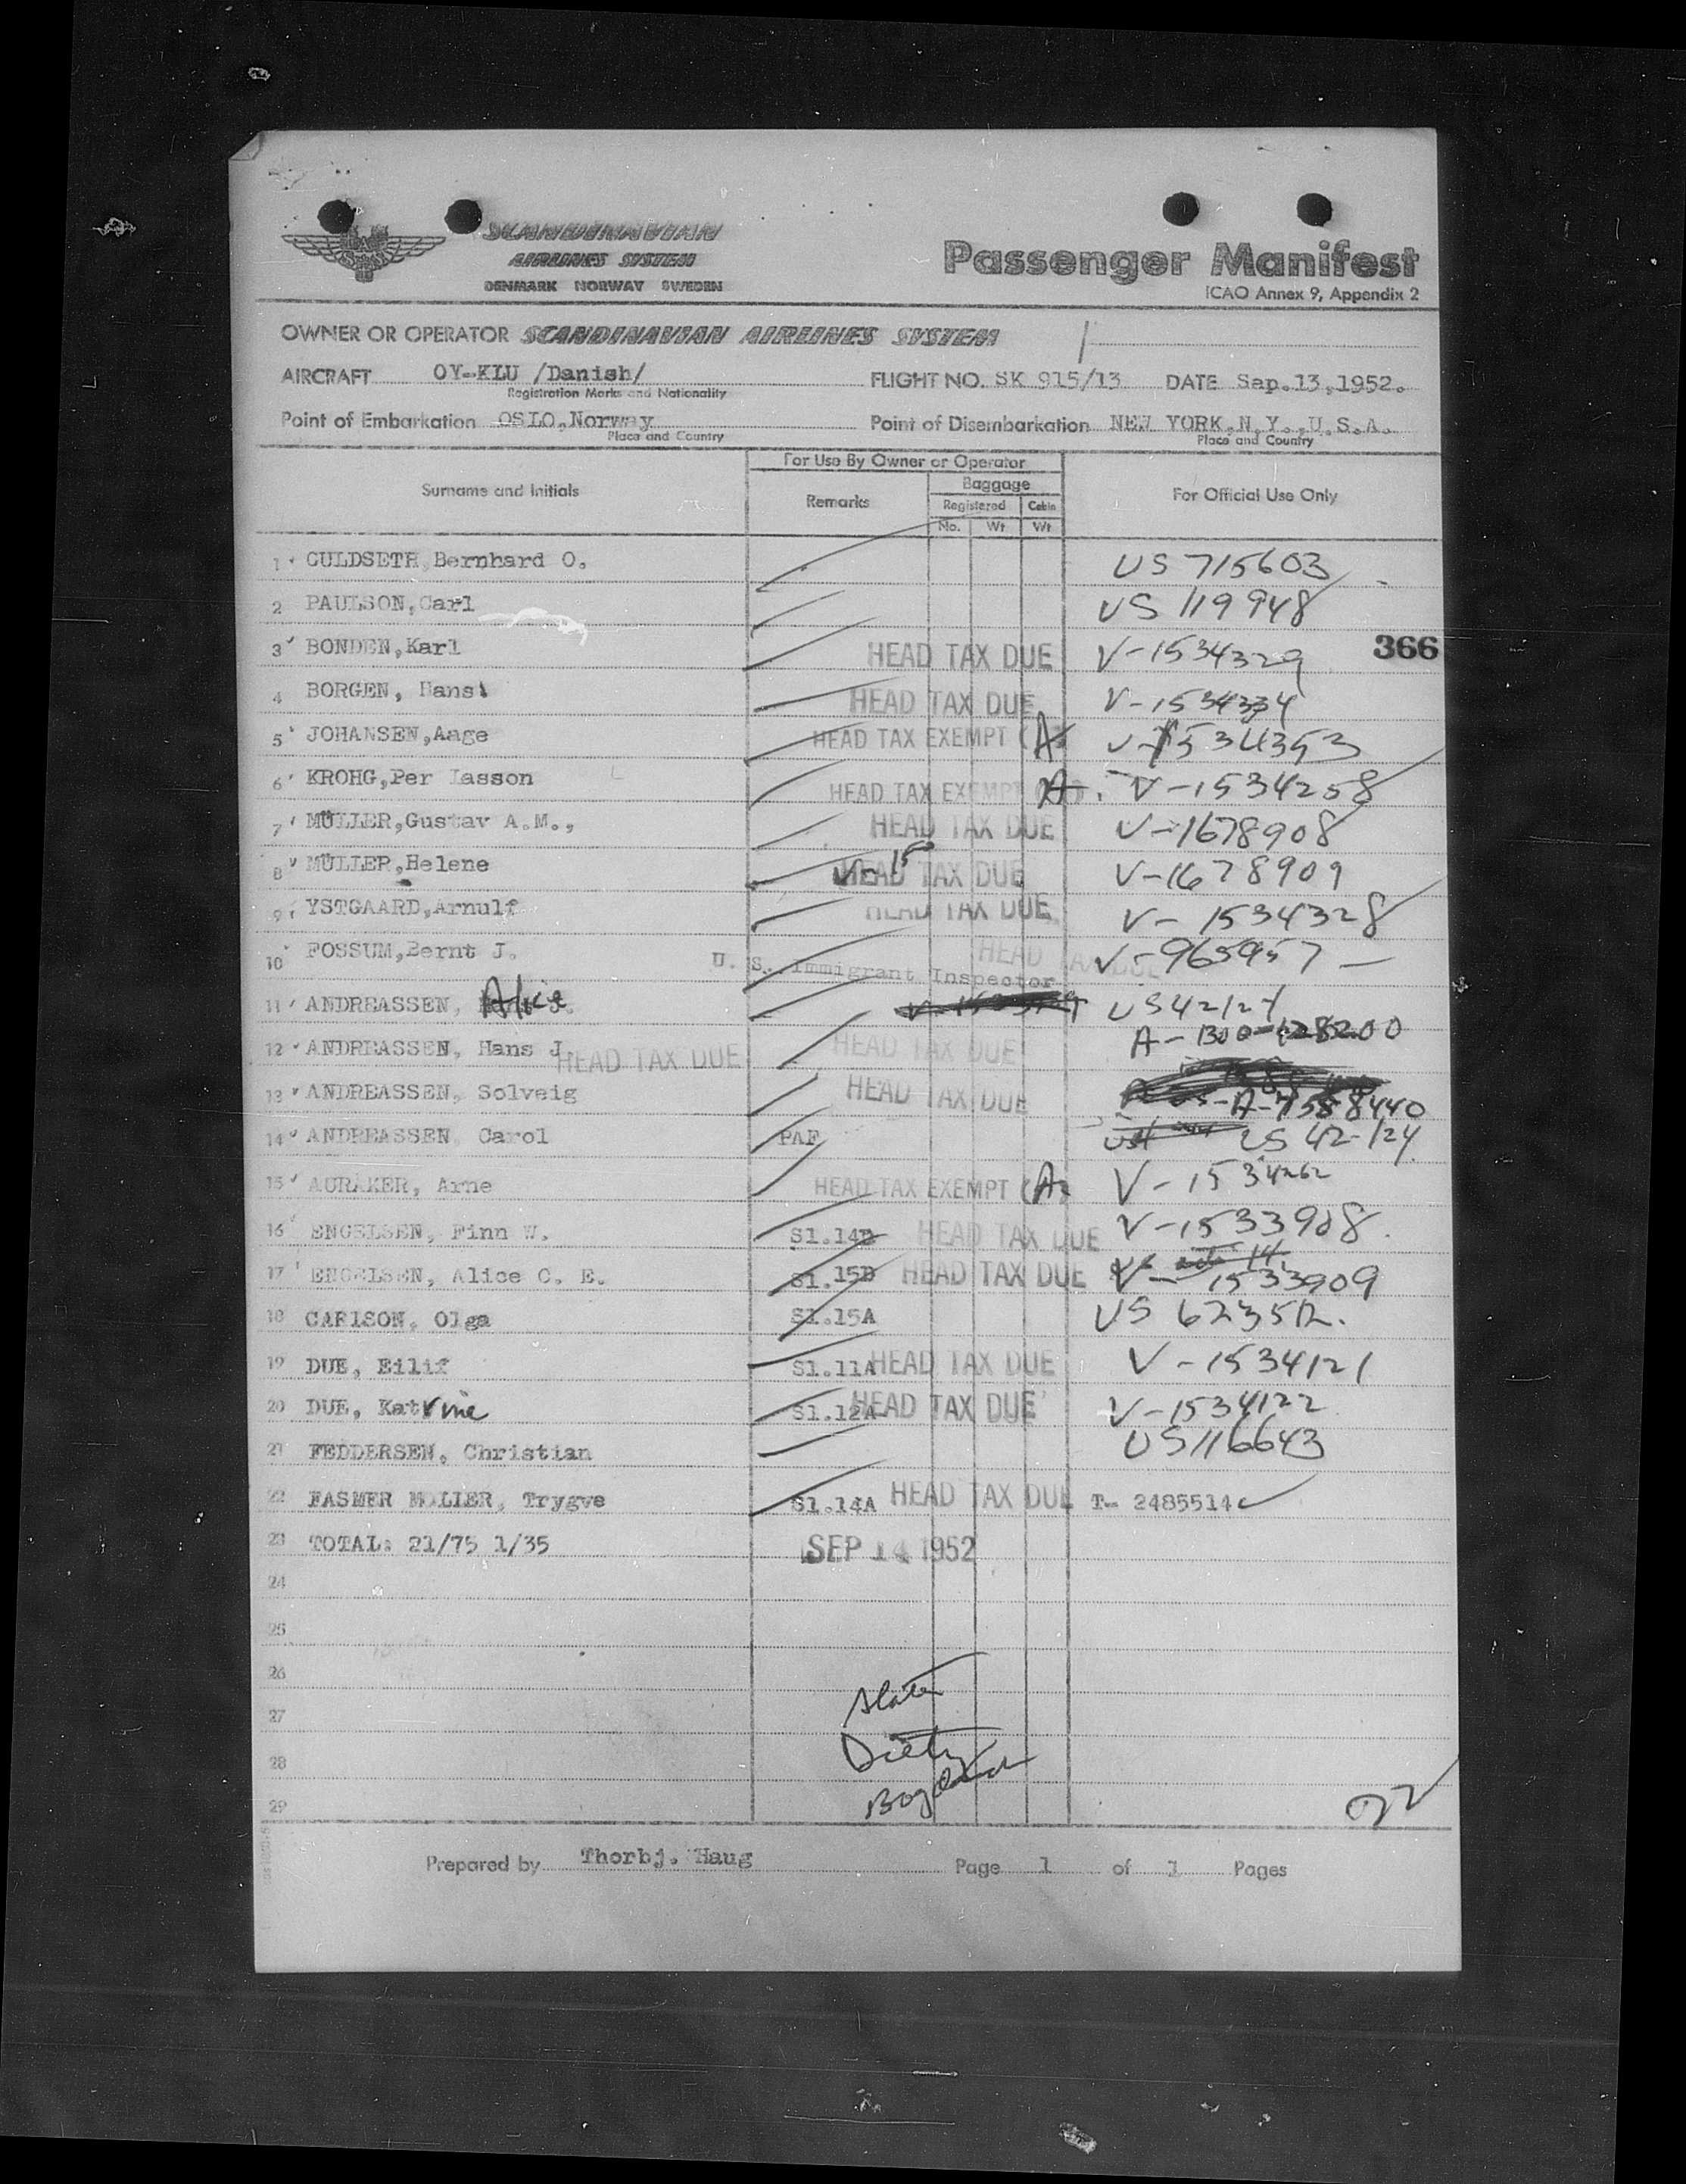 SCANDINAVIAN
AIRLINES SYSTEM
DENMARK NORWAY SWEDEN
Passenger Manifest
ICAO Annex 9, Appendix 2
OWNER OR OPERATOR SCANDINAVIAN AIRLINES SYSTEM
AIRCRAFT OY-KLU /Danish/ FLIGHT NO. SK 915/13 DATE Sep.13,1952.
Registration Marks and Nationality
Point of Embarkation OSLO,Norway Point of Disembarkation NEW YORK,N.Y.,U.S.A.
Place and Country Place and Country
For Use By Owner or Operator
Surname and Initials Remarks Baggage For Official Use Only
Registered Cabin
No. Wt Wt
1 GULDSETH,Bernhard O. US 715603
2 PAULSON,Carl US 119948
366
3 BONDEN,Karl HEAD TAX DUE V-1534329
4 BORGEN, Hans HEAD TAX DUE V-1534334
5 JOHANSEN,Aage HEAD TAX EXEMPT (A) V-1534353
6 KROHG,Per Lasson HEAD TAX EXEMPT A. V-1534258
7 MÜLLER,Gustav A.M., HEAD TAX DUE V-1678908
8 MÜLLER,Helene HEAD TAX DUE V-1678909
9 YSTGAARD,Arnulf HEAD TAX DUE V-1534328
10 FOSSUM,Bernt J. HEAD TAX DUE V-965957
U. S. Immigrant Inspector
11 ANDREASSEN, Alice US 42124
12 ANDREASSEN, Hans J HEAD TAX DUE HEAD TAX DUE A-1300-128200
13 ANDREASSEN, Solveig HEAD TAX DUE A-7588440
14 ANDREASSEN, Carol PAF US 42-124
15 AURAKER, Arne HEAD TAX EXEMPT (A) V-1534262
16 ENGELSEN, Finn W. Sl.14B HEAD TAX DUE V-1533908
17 ENGELSEN, Alice C. E. Sl.15B HEAD TAX DUE V-1533909
18 CARLSON, Olga Sl.15A US 623512.
19 DUE, Eilif Sl.11A HEAD TAX DUE V-1534121
20 DUE, Katrine Sl.12A HEAD TAX DUE V-1534122
21 FEDDERSEN, Christian US 116643
22 FASMER MØLLER, Trygve Sl.14A HEAD TAX DUE T- 2485514
23 TOTAL: 21/75 1/35 SEP 14 1952
24
25
26
27
28
29
Slater
22
Prepared by Thorbj. Haug Page 1 of 1 Pages